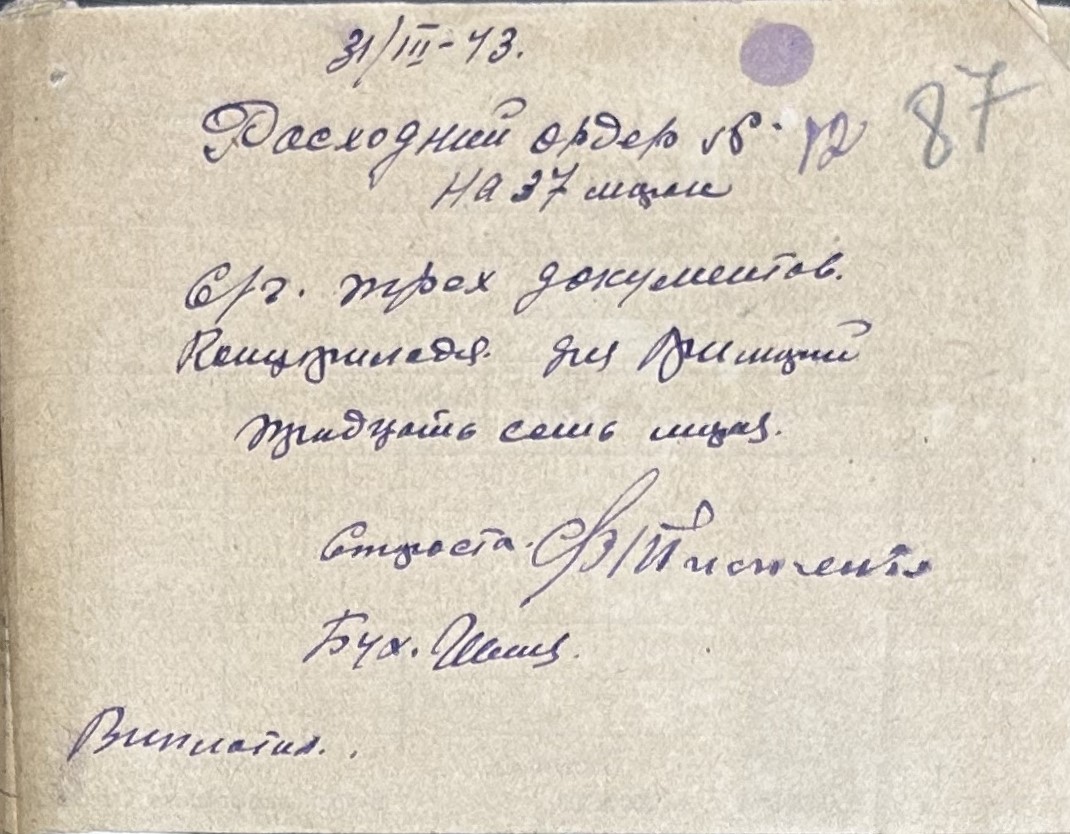 31/III-43.
87
Расходний ордер № 12
на 37 марок
С/г. трех документов.
Канцприладя для
тридцать семь марок.
Староста
Бух.
Виплатил.